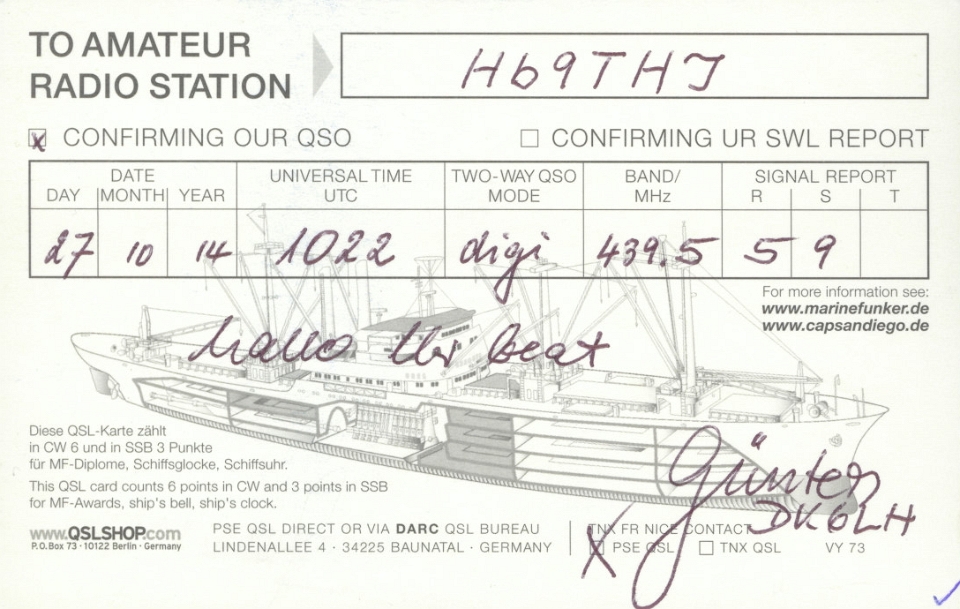 TO AMATEUR
RADIO STATION
Hb9THJ
CONFIRMING OUR QSO
CONFIRMING UR SWL REPORT
DATE
UNIVERSAL TIME
TWO-WAY QSO
BAND/
SIGNAL REPORT
DAY MONTH YEAR
UTC
MODE
MHz
R S T
27 10 14 1022 digi 439.5 5 9
For more information see:
www.marinefunker.de
www.capsandiego.de
hallo Beat
Diese QSL-Karte zählt
in CW 6 und in SSB 3 Punkte
für MF-Diplome, Schiffsglocke, Schiffsuhr.
This QSL card counts 6 points in CW and 3 points in SSB
for MF-Awards, ship's bell, ship's clock.
Günter
DK6LH
www.QSLSHOP.com
P.O.Box 73 · 10122 Berlin · Germany
PSE QSL DIRECT OR VIA DARC QSL BUREAU
LINDENALLEE 4 · 34225 BAUNATAL · GERMANY
TNX FR NICE CONTACT
PSE QSL TNX QSL VY 73